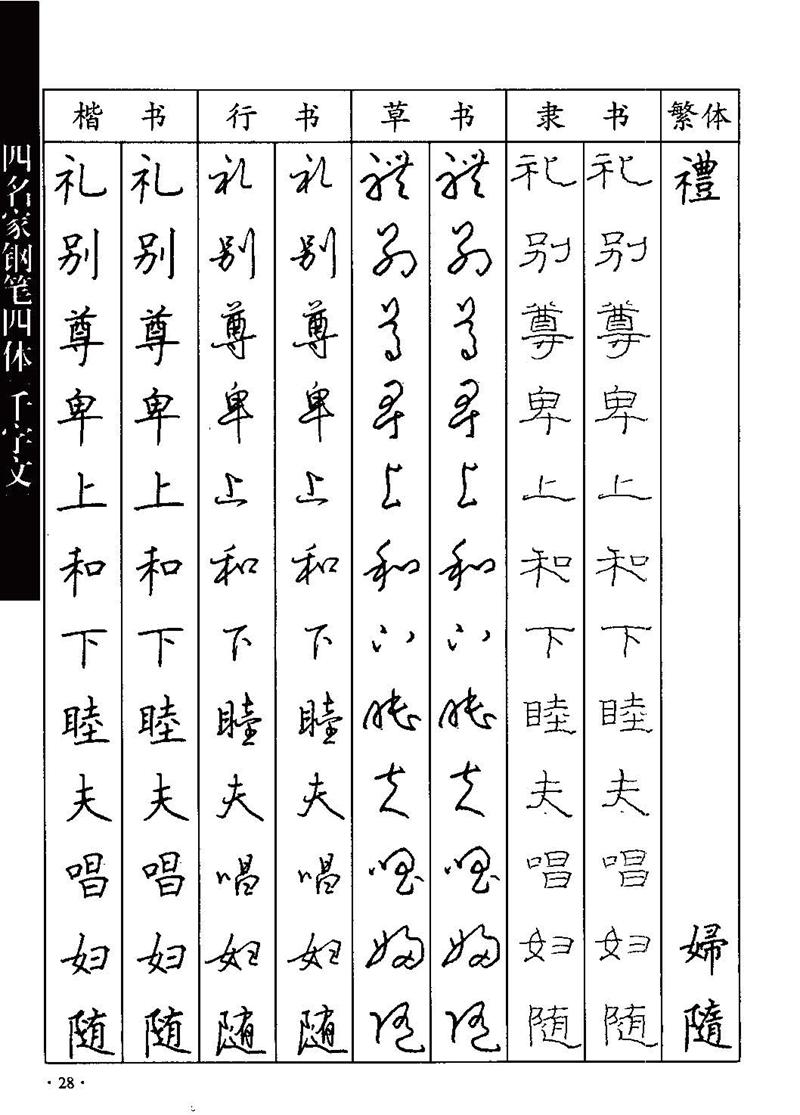 四名家钢笔四体《千字文》
楷书 行书 草书 隶书 繁体
礼 礼 礼 礼 礼 礼 礼 礼 禮
别 别 别 别 别 别 别 别
尊 尊 尊 尊 尊 尊 尊 尊
卑 卑 卑 卑 卑 卑 卑 卑
上 上 上 上 上 上 上 上
和 和 和 和 和 和 和 和
下 下 下 下 下 下 下 下
睦 睦 睦 睦 睦 睦 睦 睦
夫 夫 夫 夫 夫 夫 夫 夫
唱 唱 唱 唱 唱 唱 唱 唱
妇 妇 妇 妇 妇 妇 妇 妇 婦
随 随 随 随 随 随 随 随 隨
·28·